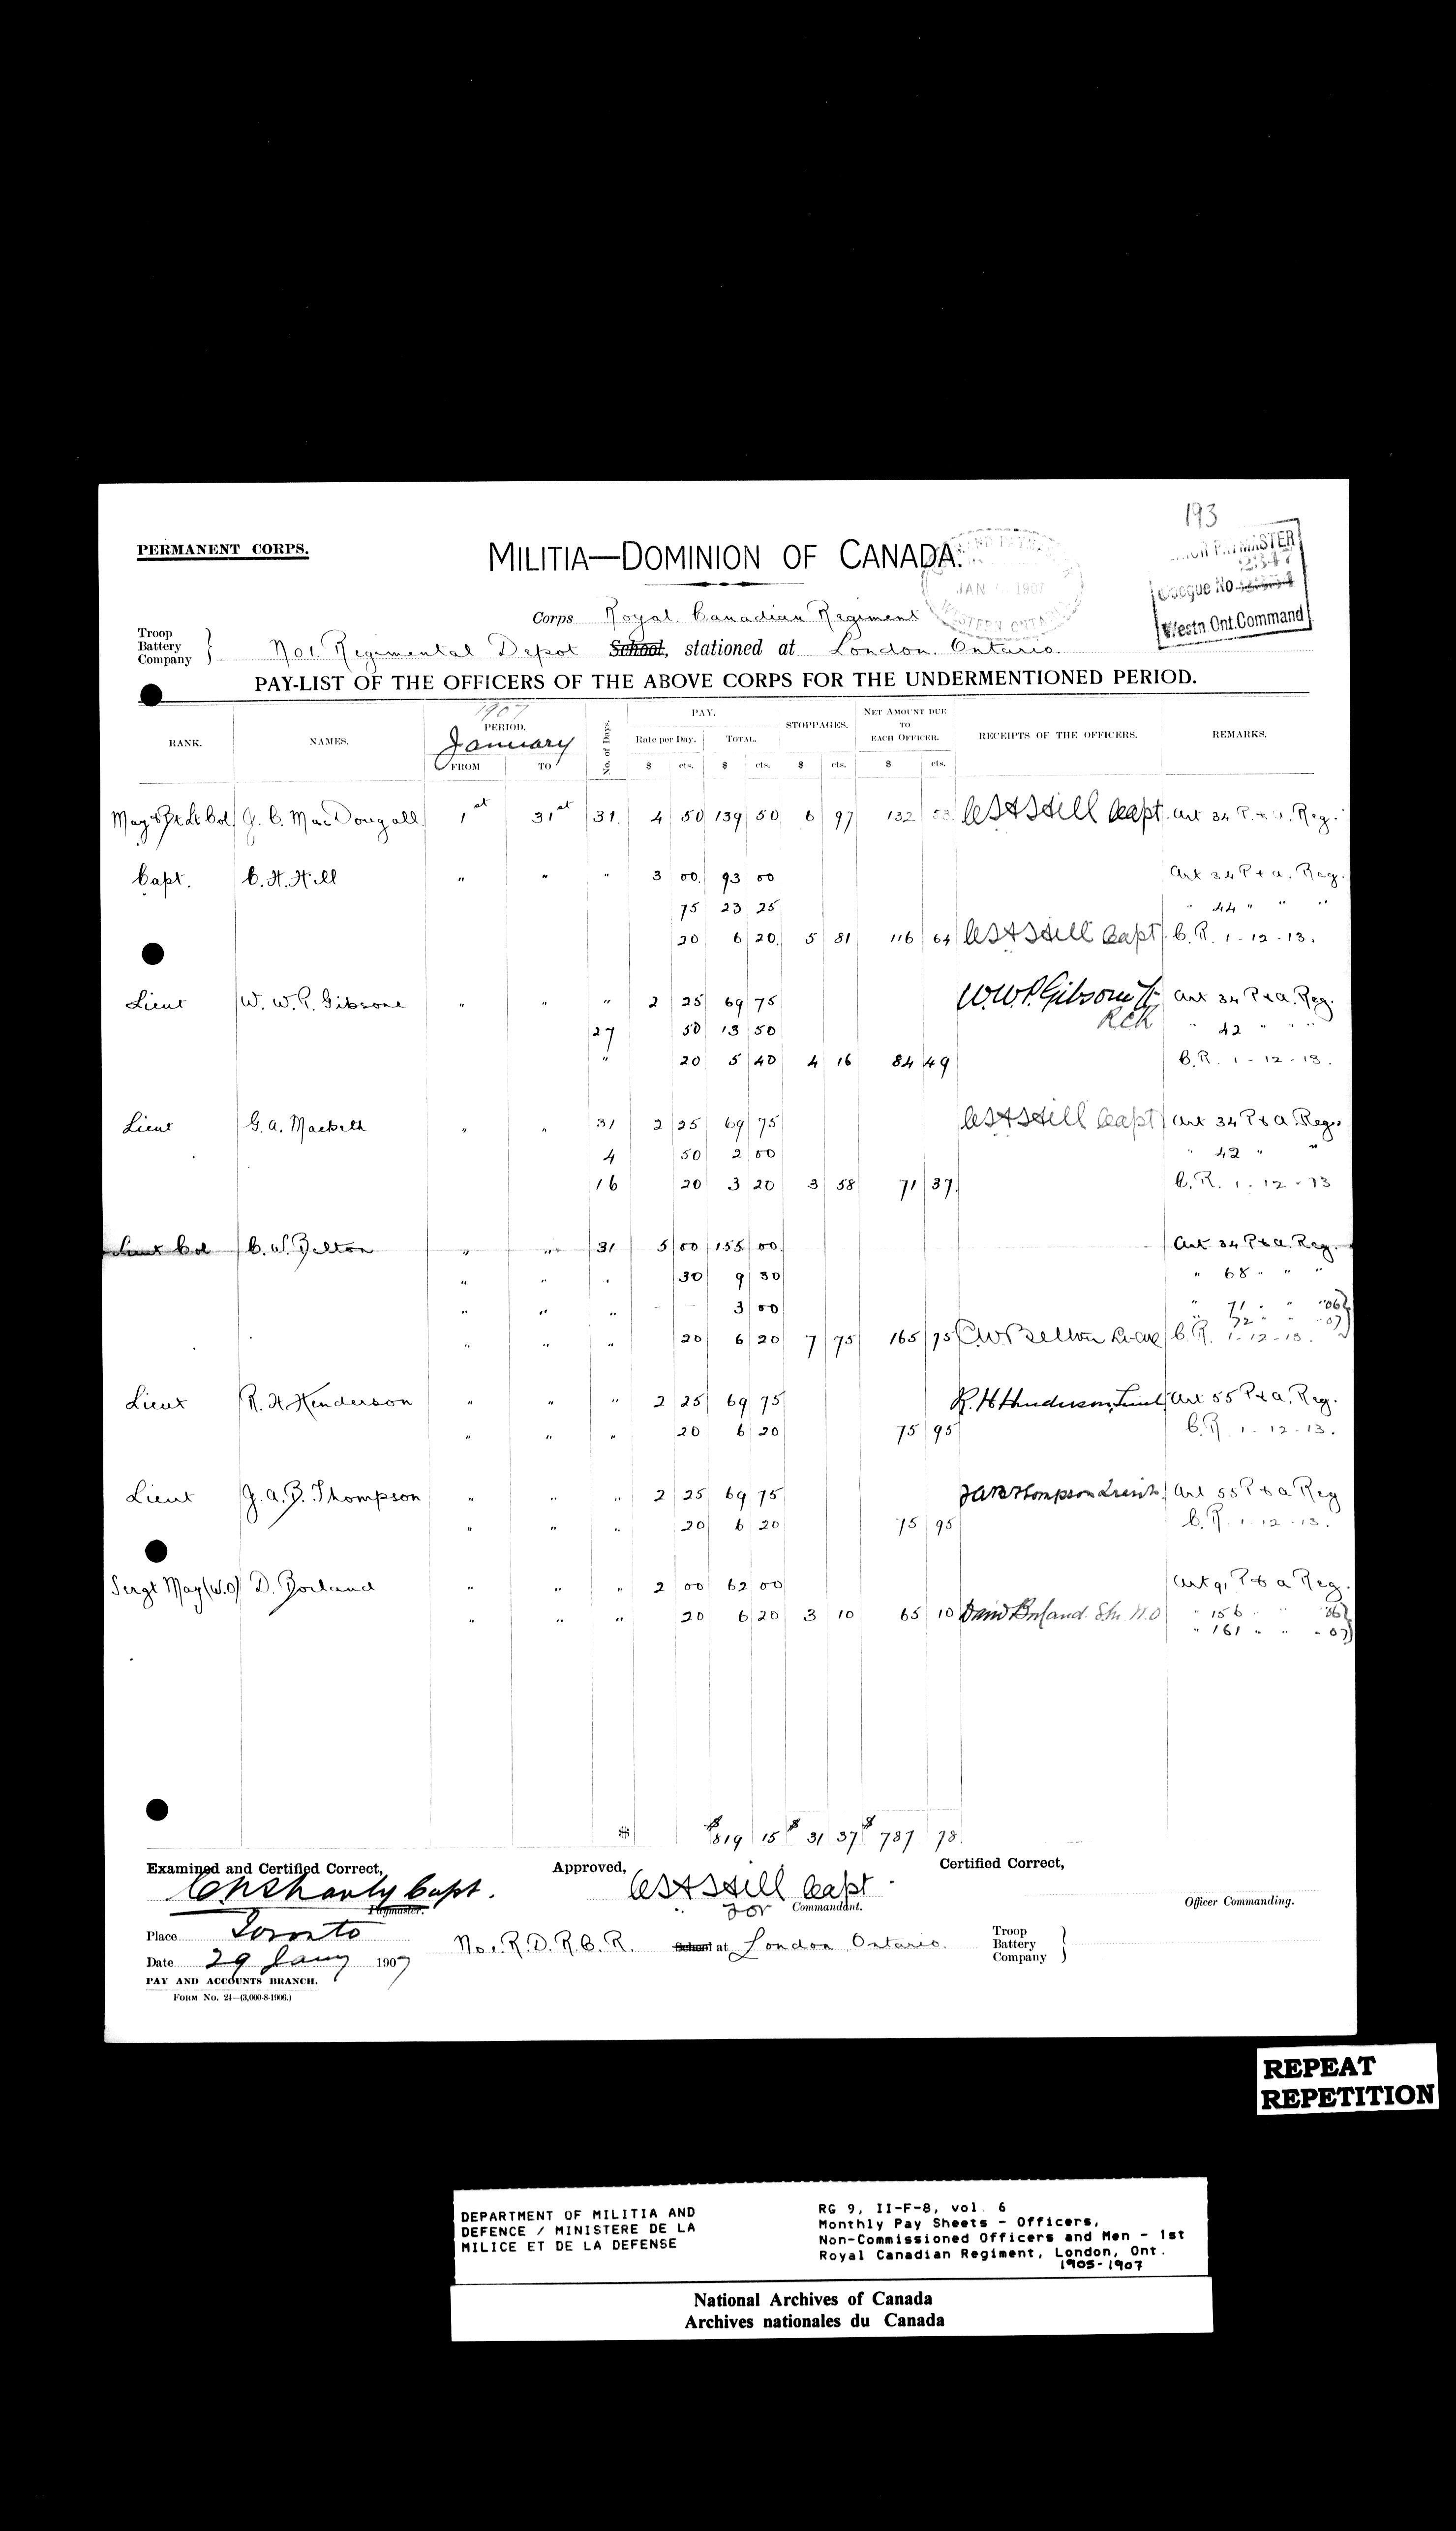 193
PERMANENT CORPS.
MILITIA—DOMINION OF CANADA.
JAN 1907
WESTERN ONTARIO
PAYMASTER
2347
Cheque No
Westn Ont. Command
Corps Royal Canadian Regiment
Troop
Battery
Company } No 1. Regimental Depot School, stationed at London. Ontario.
PAY-LIST OF THE OFFICERS OF THE ABOVE CORPS FOR THE UNDERMENTIONED PERIOD.
RANK. NAMES. 1907 PERIOD. January FROM TO No. of Days. PAY. Rate per Day. $ cts. TOTAL. $ cts. STOPPAGES. $ cts. NET AMOUNT DUE TO EACH OFFICER. $ cts. RECEIPTS OF THE OFFICERS. REMARKS.
Maj & Bt Lt Col. J. C. MacDougall 1st 31st 31. 4 50 139 50 6 97 132 53 C H Hill Capt. Art 34 P. & A. Reg.
Capt. C. H. Hill " " " 3 00. 93 00 Art 34 P & A. Reg.
75 23 25 " 44 " " "
20 6 20. 5 81 116 64 C H Hill Capt C. R. 1-12-13.
Lieut W. W. P. Gibsone " " " 2 25 69 75 W.W.P. Gibsone Lt Art 34 P & A. Reg.
27 50 13 50 RCR " 42 " " "
" 20 5 40 4 16 84 49 C.R. 1-12-13.
Lieut G. A. Macbeth " " 31 2 25 69 75 C H Hill Capt Art 34 P & A. Regs
4 50 2 00 " 42 " "
16 20 3 20 3 58 71 37. C. R. 1-12-13
Lieut Col C. W. Belton " " 31 5 00 155 00. Art 34 P & A. Reg.
" " " 30 9 30 " 68 " " "
" " " - - 3 00 " 71 " " "06}
" 72 " " "07}
" " " 20 6 20 7 75 165 75 C W Belton Lt-Col C. R. 1-12-13.
Lieut R. H. Henderson " " " 2 25 69 75 R. H. Henderson, Lieut Art 55 P & A. Reg.
" " " 20 6 20 75 95 C. R. 1-12-13.
Lieut J. A. B. Thompson " " " 2 25 69 75 J A B Thompson Lieut. Art 55 P & A Reg
" " " 20 6 20 75 95 C. R. 1-12-13.
Sergt Maj (W.O) D. Borland " " " 2 00 62 00 Art 91 P & A Reg.
" " " 20 6 20 3 10 65 10 David Borland. S.M. W.O " 156 " " "06}
" 161 " " "07}
$ $819 15 $31 37 $787 78
Examined and Certified Correct, Approved, Certified Correct,
C N Shanly Capt. C H Hill Capt.
Paymaster. For Commandant. Officer Commanding.
Place Toronto No 1. R. D. R. C. R. School at London Ontario. Troop
Battery
Company }
Date 29 Jany 1907
PAY AND ACCOUNTS BRANCH.
FORM No. 24—(3,000-8-1906.)
REPEAT
REPETITION
DEPARTMENT OF MILITIA AND
DEFENCE / MINISTERE DE LA
MILICE ET DE LA DEFENSE
RG 9, II-F-8, vol. 6
Monthly Pay Sheets - Officers,
Non-Commissioned Officers and Men - 1st
Royal Canadian Regiment, London, Ont.
1905-1907
National Archives of Canada
Archives nationales du Canada